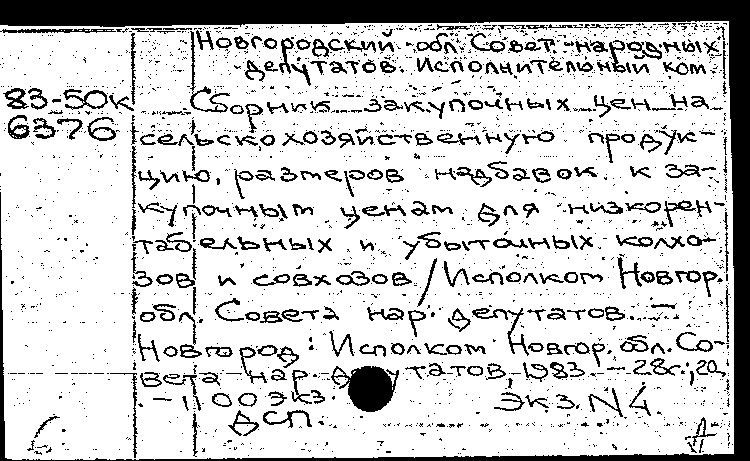 Новгородский обл. Совет народных
депутатов. Исполнительный ком.
83-50к
6376
Сборник закупочных цен на
сельскохозяйственную продук-
цию, размеров надбавок к за-
купочным ценам для низкорен-
табельных и убыточных колхо-
зов и совхозов / Исполком Новгор.
обл. Совета нар. депутатов. -
Новгород: Исполком Новгор. обл. Со-
вета нар. депутатов, 1983. - 28с.; 20
. - 100 экз. Экз. N4.
ДСП.